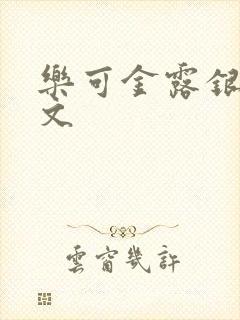 樂可金露銀
文
雲窗幾許